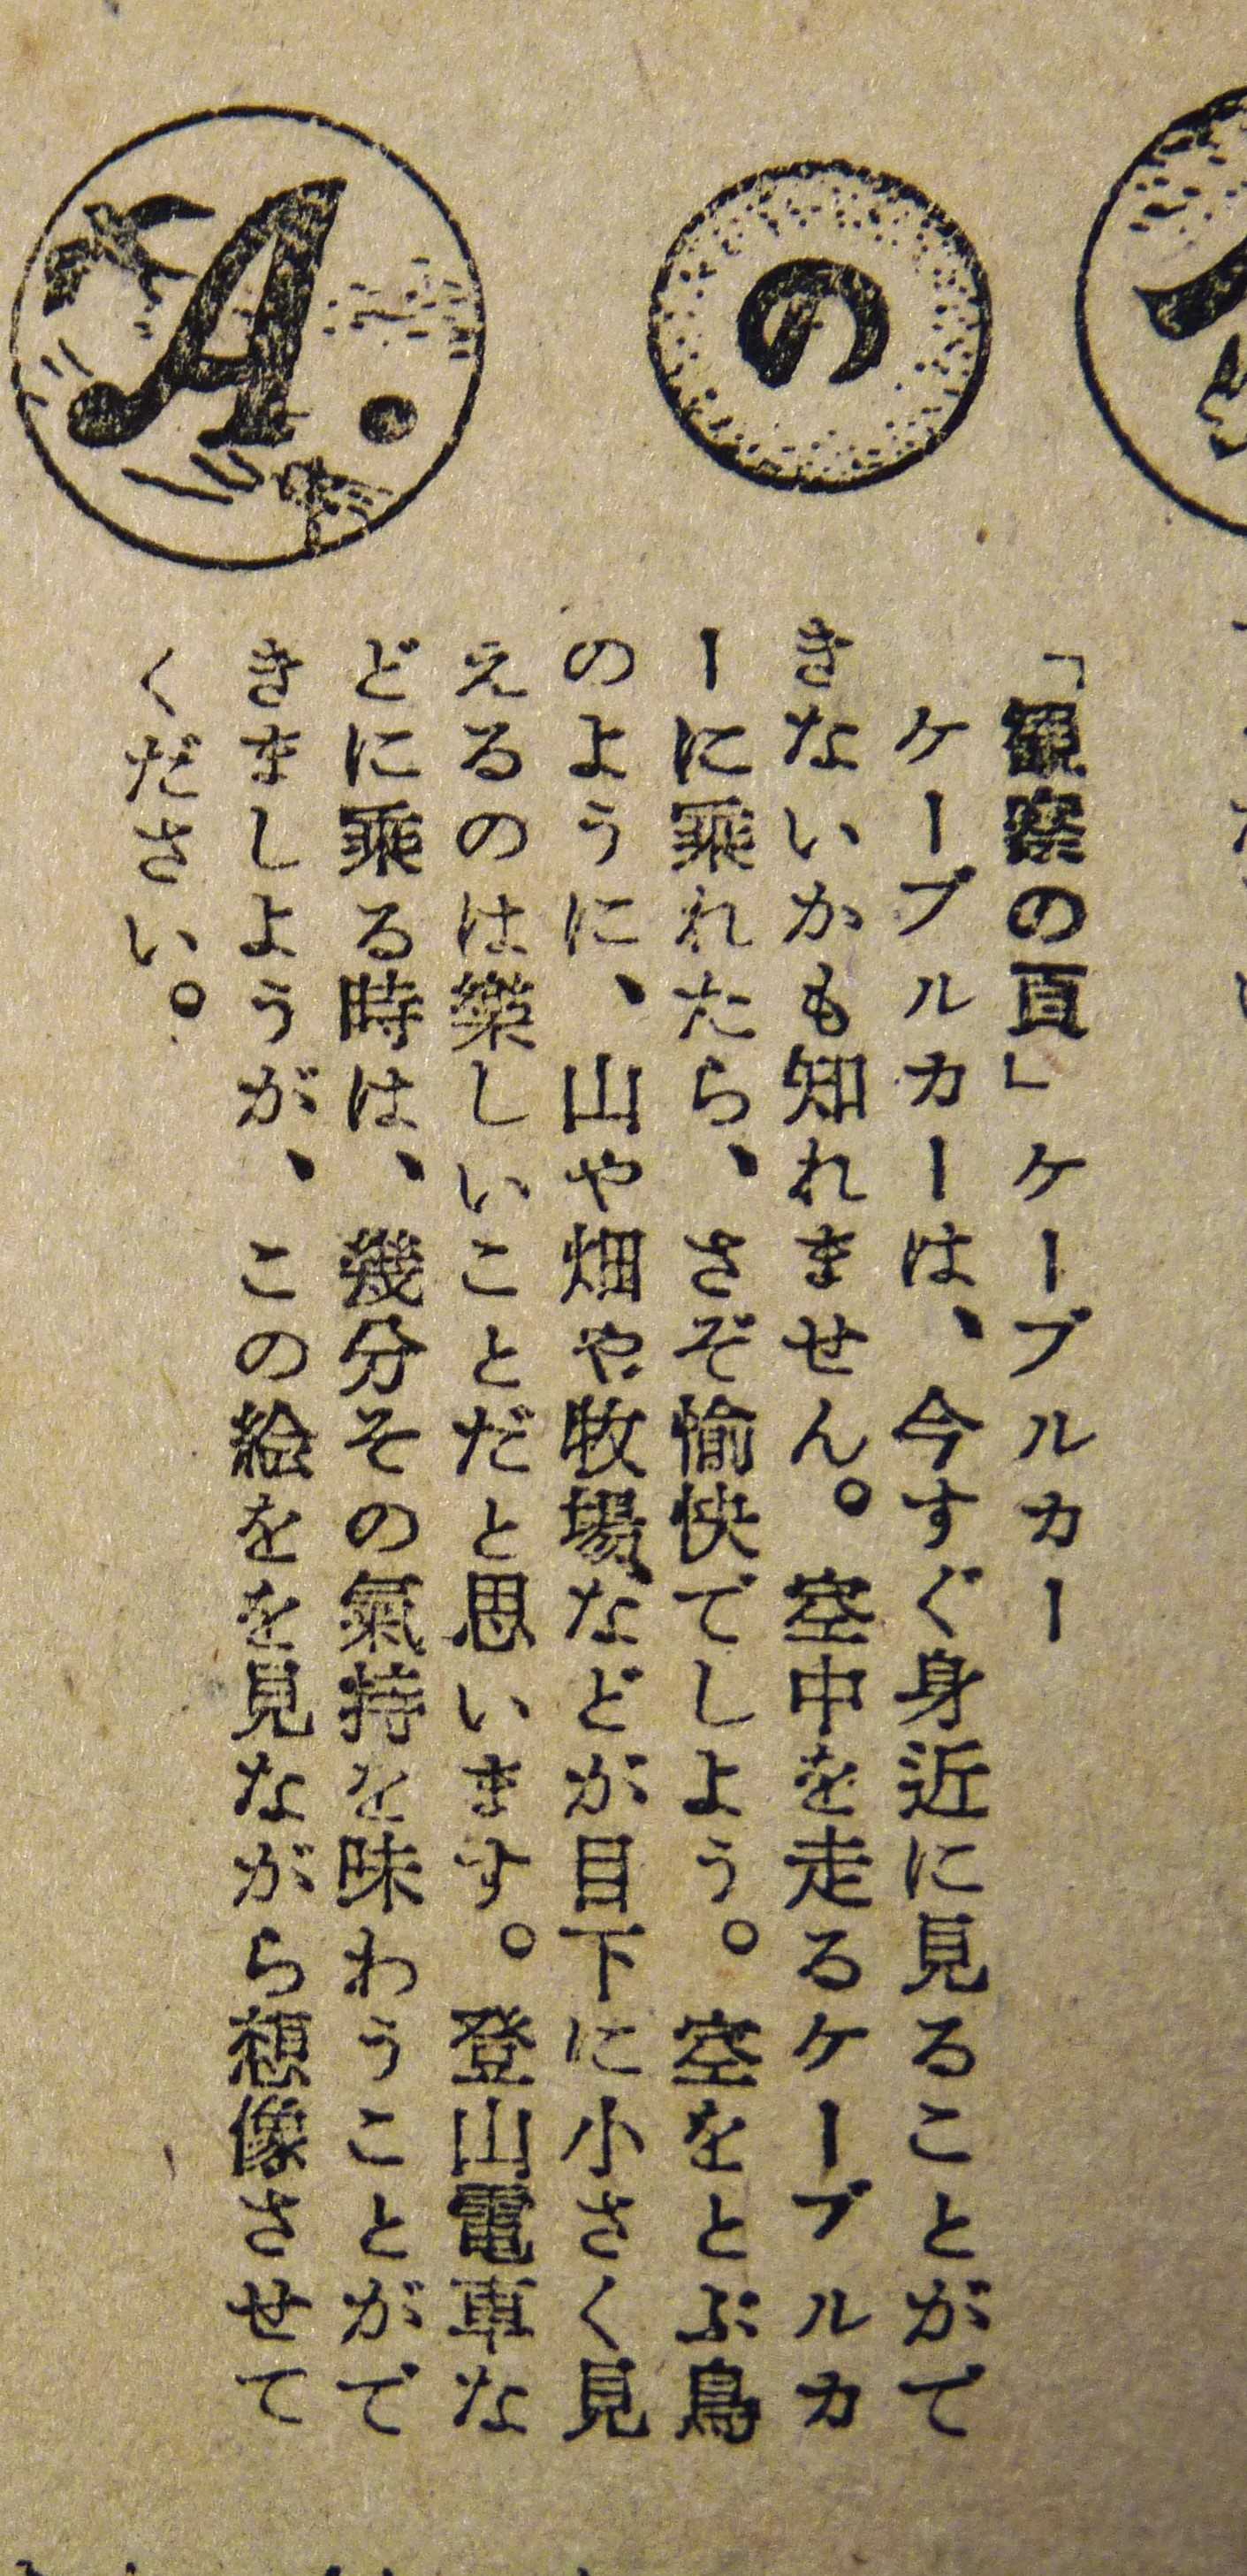 の
A
「観察の頁」ケーブルカー
ケーブルカーは、今すぐ身近に見ることがで
きないかも知れません。空中を走るケーブルカ
ーに乘れたら、さぞ愉快でしよう。空をとぶ鳥
のように、山や畑や牧場などが目下に小さく見
えるのは樂しいことだと思います。登山電車な
どに乘る時は、幾分その氣持を味わうことがで
きましようが、この絵をを見ながら想像させて
ください。